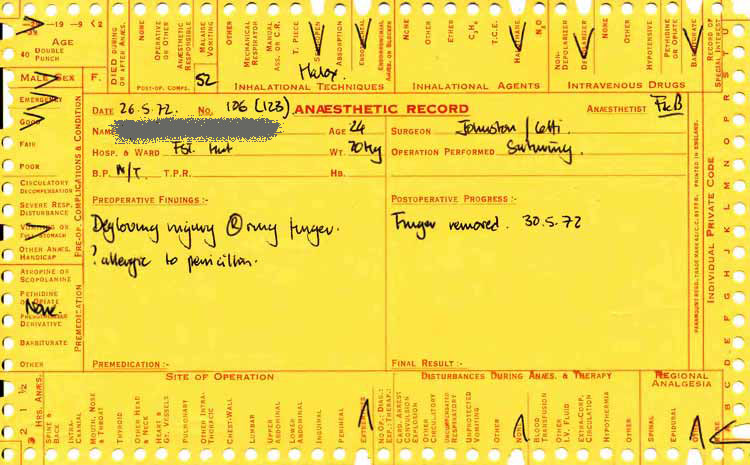 19 9 <2
AGE
40 DOUBLE PUNCH
MALE SEX F.
DIED DURING OR AFTER ANÆS.
NONE
OPERATIVE OR OTHER
ANÆSTHETIC RESPONSIBLE
MALAISE VOMITING
OTHER
POST-OP. COMPS.
52
MECHANICAL RESPIRATOR
MANUAL ASS. OR C.R.
T. PIECE
ABSORPTION
NONE
OTHER
ETHER
T.C.E.
HALOTHANE
N₂O
NON-DEPOLARIZER
DEPOLARIZER
NONE
OTHER
HYPOTENSIVE
PETHIDINE OR OPIATE
BARBITURATE
RECORD OF SPECIAL INTEREST
Halox.
INHALATIONAL TECHNIQUES INHALATIONAL AGENTS INTRAVENOUS DRUGS
DATE 26.5.72. NO. 106 (123) ANÆSTHETIC RECORD ANÆSTHETIST
NAME AGE 24 SURGEON Johnston /
HOSP. & WARD WT. 70 kg OPERATION PERFORMED Suturing.
B.P. N/T T.P.R. HB.
PREOPERATIVE FINDINGS :- POSTOPERATIVE PROGRESS :-
Degloving injury Ⓡ ring finger. Finger removed. 30.5.72
? allergic to penicillin.
PREMEDICATION :- FINAL RESULT :-
EMERGENCY
GOOD
FAIR
POOR
CIRCULATORY DECOMPENSATION
SEVERE RESP. DISTURBANCE
VOMITING OR FULL STOMACH
OTHER ANÆS. HANDICAP
PRE-OP. COMPLICATIONS & CONDITION
ATROPINE OR SCOPOLAMINE
PETHIDINE OR OPIATE
None.
PHENOTHIAZINE DERIVATIVE
BARBITURATE
OTHER
PREMEDICATION
PRINTED IN ENGLAND.
INDIVIDUAL PRIVATE CODE
SITE OF OPERATION DISTURBANCES DURING ANÆS. & THERAPY REGIONAL ANALGESIA
2 1 ½
HRS. ANÆS.
SPINE & BACK
INTRA-CRANIAL
MOUTH, NOSE & THROAT
THYROID
OTHER HEAD & NECK
HEART & GT. VESSELS
PULMONARY
OTHER INTRA-THORACIC
CHEST-WALL
LUMBAR
UPPER ABDOMINAL
LOWER ABDOMINAL
INGUINAL
PERINEAL
EXTREMITIES
NO OP: DIAG.: EX.: THERAP.:
CARD. ARREST CONVULSION EXPLOSION
OTHER CIRCULATORY
UNCOMPENSATED RESPIRATORY
UNPROTECTED VOMITING
OTHER
NONE
BLOOD TRANSFUSION
OTHER I.V. FLUID
EXTRA-CORP. CIRCULATION
HYPOTHERMIA
OTHER
SPINAL
EPIDURAL
OTHER
NONE